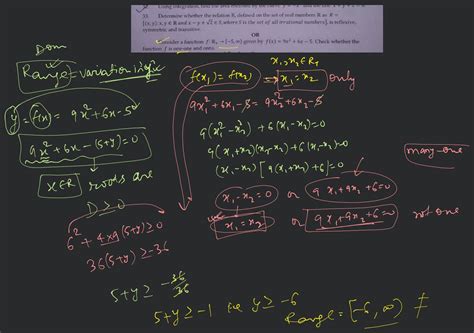 Using integration, find the area enclosed by the curve
33. Determine whether the relation R, defined on the set of real numbers R as R =
{(x, y) : x, y ∈ R and x − y + √2 ∈ S, where S is the set of all irrational numbers}, is reflexive,
symmetric and transitive.
OR
Consider a function f : R₊ → [−5, ∞) given by f(x) = 9x² + 6x − 5. Check whether the
function f is one-one and onto.
Dom
Range = variation in
y = f(x) = 9x² + 6x − 5
9x² + 6x − (5+y) = 0
x∈R roots are
D ≥ 0
6² + 4×9(5+y) ≥ 0
36(5+y) ≥ −36
5+y ≥ −36/36
5+y ≥ −1 i.e y ≥ −6
Range = [−6, ∞) ≠
x₁, x₂ ∈ R₊
f(x₁) = f(x₂) ⇒ x₁ = x₂ only
9x₁² + 6x₁ − 5 = 9x₂² + 6x₂ − 5
9(x₁² − x₂²) + 6(x₁ − x₂) = 0
9(x₁+x₂)(x₁−x₂) + 6(x₁−x₂) = 0
(x₁−x₂)[9(x₁+x₂)+6] = 0
x₁−x₂ = 0 or 9x₁+9x₂+6 = 0
x₁ = x₂ or 9x₁+9x₂+6 = 0
many-one
not one